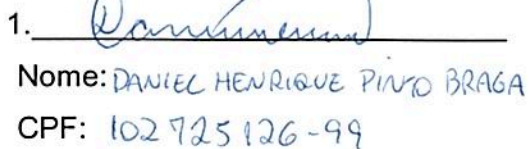 1.
Nome: DANIEL HENRIQUE PINTO BRAGA
CPF: 102725126-99